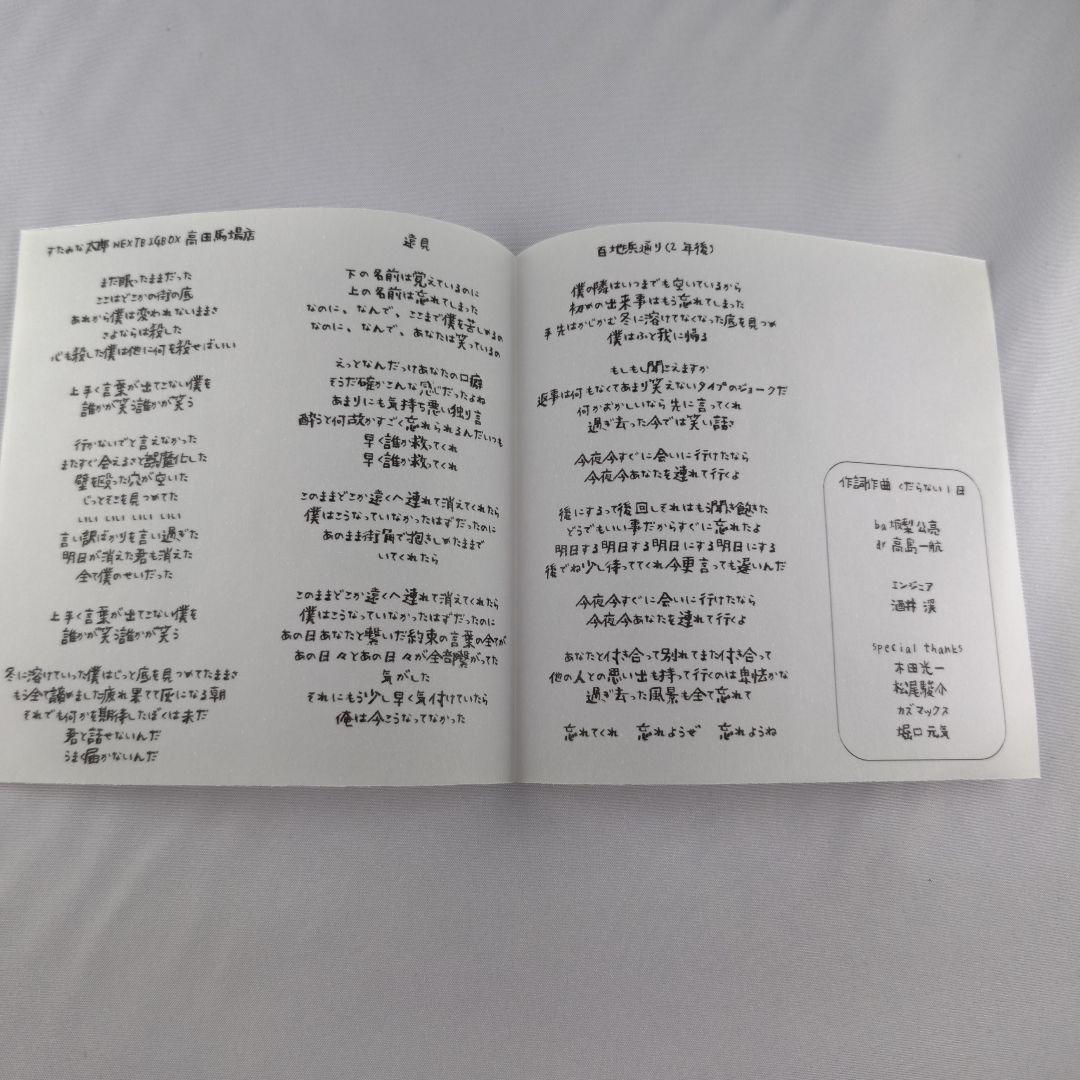 すたみな太郎NEXTBIGBOX 高田馬場店
まだ眠ったままだった
ここはどこかの街の底
あれから僕は変われないままさ
さよならは殺した
心も殺した僕は他に何を殺せばいい
上手く言葉が出てこない僕を
誰かが笑う誰かが笑う
行かないでと言えなかった
またすぐ会えるさと誤魔化した
壁を殴った穴が空いた
じっとそこを見つめてた
いい いい いい いい
言い訳ばかりを言い過ぎた
明日が消えた君も消えた
全て僕のせいだった
上手く言葉が出てこない僕を
誰かが笑う誰かが笑う
冬に溶けていった僕はじっと底を見つめてたままさ
もう全て諦めました疲れ果てて灰になる朝
それでも何かを期待したぼくは未だ
君と話せないんだ
うまく届かないんだ
遠見
下の名前は覚えているのに
上の名前は忘れてしまった
なのに、なんで、ここまで僕を苦しめるの
なのに、なんで、あなたは笑っているの
えっとなんだっけあなたの口癖
そうだ確かこんな感じだったよね
あまりにも気持ち悪い独り言
酔うと何故かすごく忘れられるんだいつも
早く誰か救ってくれ
早く誰か救ってくれ
このままどこか遠くへ連れて消えてくれたら
僕はこうなっていなかったはずだったのに
あのまま街角で抱きしめたままで
いてくれたら
このままどこか遠くへ連れて消えてくれたら
僕はこうなっていなかったはずだったのに
あの日あなたと繋いだ約束の言葉の全てが
あの日々とあの日々が全部繋がってた
気がした
それにもう少し早く気付けていたら
俺は今こうなってなかった
百地浜通り(2年後)
僕の隣はいつまでも空いているから
初めの出来事はもう忘れてしまった
手先はかじかむ冬に溶けてなくなった底を見つめ
僕はふと我に帰る
もしもし聞こえますか
返事は何もなくてあまり笑えないタイプのジョークだ
何かおかしいなら先に言ってくれ
過ぎ去った今では笑い話さ
今夜今すぐに会いに行けたなら
今夜今あなたを連れて行くよ
後にするって後回しそれはも聞き飽きた
どうでもいい事だからすぐに忘れたよ
明日する明日する明日にする明日にする
後でね少し待っててくれ今更言っても遅いんだ
今夜今すぐに会いに行けたなら
今夜今あなたを連れて行くよ
あなたと付き合って別れてまた付き合って
他の人との思い出も持って行くのは卑怯かな
過ぎ去った風景も全て忘れて
忘れてくれ 忘れようぜ 忘れようね
作詞作曲 くだらない1日
ba 坂梨公亮
dr 高島一航
エンジニア
酒井 渓
special thanks
木田光一
松尾駿介
カズマックス
堀口元気